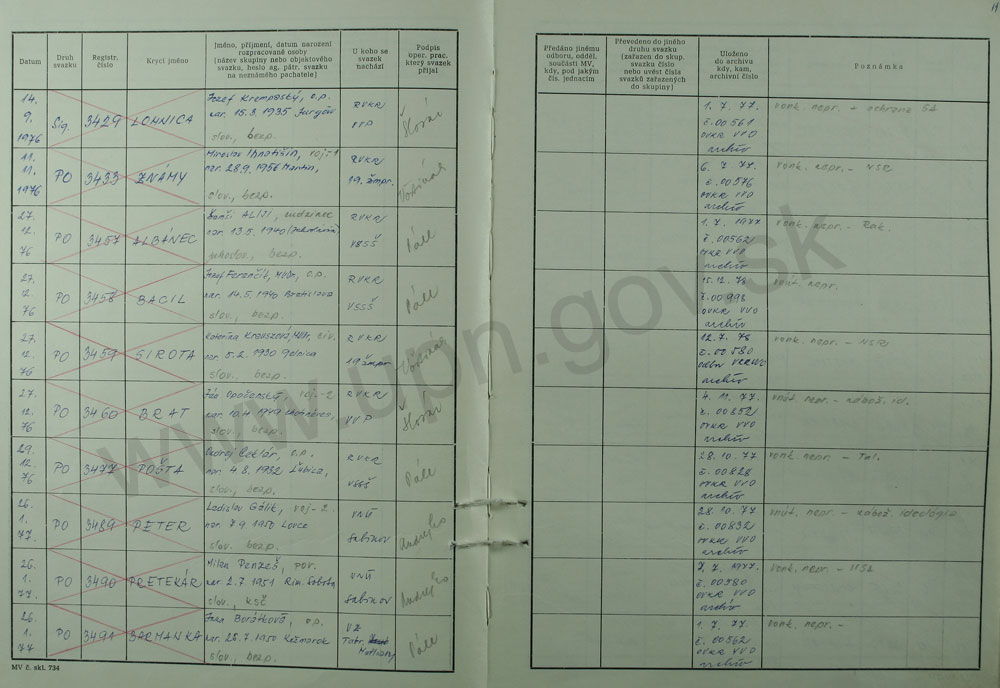 11
Datum
Druh svazku
Registr. číslo
Krycí jméno
Jméno, příjmení, datum narození
rozpracované osoby
(název skupiny nebo objektového
svazku, heslo ag. pátr. svazku
na neznámého pachatele)
U koho se
svazek
nachází
Podpis
oper. prac.
který svazek
přijal
Předáno jinému
odboru, odděl.
součásti MV,
kdy, pod jakým
čís. jednacím
Převedeno do jiného
druhu svazku
(zařazen do skup.
svazku číslo
nebo uvést čísla
svazků zařazených
do skupiny)
Uloženo
do archivu
kdy, kam,
archivní číslo
Poznámka
14. 9. 1976 Sig. 3429 LOMNICA
Jozef Krempaský, o.p.
nar. 15. 3. 1935
slov., bezp.
RVKR
VVP
Slovár
1. 7. 77.
č. 00561
OVKR VVO
archív
vonk. nepr. + ochrana
11. 11. 1976 PO 3433 ZNÁMY
Miroslav
nar. 28.9. 1956 Martin,
slov., bezp.
RVKR
19. žmpr.
6. 7. 77
č. 00576
OVKR VVO
archív
vonk. nepr. - NSR
27. 12. 76 PO 3457 ALBÁNEC
ALIJI, cudzinec
nar. 13. 5. 1940
juhoslov., bezp.
RVKR
VSSŠ
Páll
1. 7. 1977
č. 00562
OVKR VVO
archív
vonk. nepr. - Rak.
27. 12. 76 PO 3458 BACIL
Jozef Ferenčík, MUDr., o.p.
nar. 14. 5. 1940 Bratislava
slov., bezp.
RVKR
VSSŠ
Páll
15. 12. 78
č. 00998
OVKR VVO
archív
vonk. nepr.
27. 12. 76 PO 3459 SIROTA
Katarína
nar. 5. 2. 1930 Gelnica
slov. bezp.
RVKR
19 žmpr.
12. 7. 78
č. 00580
archív
vonk. nepr. - NSR
27. 12. 76 PO 3460 BRAT
Ján Opočenský, voj-2
nar. 10. 4 1949
slov., bezp.
RVKR
VVP
Slovár
4. 11. 77.
č. 00852
OVKR VVO
archív
vnút. nepr. - nábož. id.
29. 12. 76 PO 3477 POŠTA
Ondrej Ceklár, o.p.
nar. 4. 8. 1952 Ľubica,
slov., bezp.
RVKR
VSSŠ
Páll
28. 10. 77
č. 00828
OVKR VVO
archív
vonk. nepr. - Tal.
26. 1. 77. PO 3489 PETER
Ladislav Gálik, voj-2.
nar. 7 9. 1950
slov. bezp.
VNÚ
Sabinov
Andrejko
28. 10. 77
č. 00832
OVKR VVO
archív
vnút. nepr. - nábož. ideológia
26. 1. 77 PO 3490 PRETEKÁR
Milan Penzeš, por.
nar. 2. 7. 1951 Rim. Sobota
slov., KSČ
VNÚ
Sabinov
Andrejko
7. 7. 1977.
č. 00580
OVKR VVO
archív
vonk. nepr. - USA
26. 1. 77 PO 3491 BARMANKA
Jana Burátková, o.p.
nar. 28. 7. 1950 Kežmarok
slov., bezp.
VZ
Tatr.
Matliary
Páll
1. 7. 77
č. 00562
OVKR VVO
archív
vonk. nepr. -
MV č. skl. 734
www.upn.gov.sk